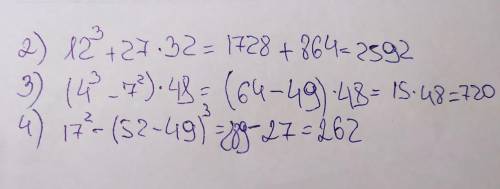 2) 12³ + 27 · 32 = 1728 + 864 = 2592
3) (4³ - 7²) · 48 = (64 - 49) · 48 = 15 · 48 = 720
4) 17² - (52 - 49)³ = 289 - 27 = 262